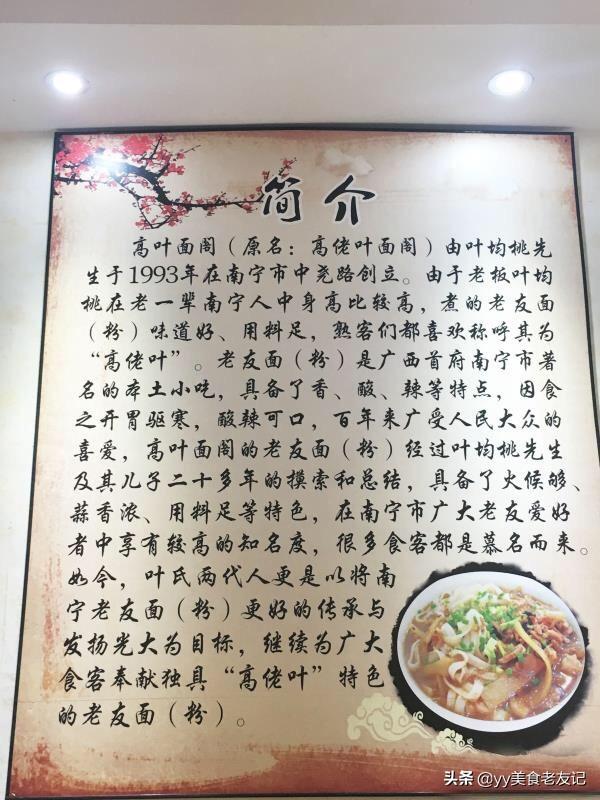 简介
高叶面阁（原名：高佬叶面阁）由叶均桃先
生于1993年在南宁市中尧路创立。由于老板叶均
桃在老一辈南宁人中身高比较高，煮的老友面
（粉）味道好、用料足，熟客们都喜欢称呼其为
“高佬叶”。老友面（粉）是广西首府南宁市著
名的本土小吃，具备了香、酸、辣等特点，因食
之开胃驱寒，酸辣可口，百年来广受人民大众的
喜爱，高叶面阁的老友面（粉）经过叶均桃先生
及其儿子二十多年的摸索和总结，具备了火候够、
蒜香浓、用料足等特色，在南宁市广大老友爱好
者中享有较高的知名度，很多食客都是慕名而来。
如今，叶氏两代人更是以将南
宁老友面（粉）更好的传承与
发扬光大为目标，继续为广大
食客奉献独具“高佬叶”特色
的老友面（粉）。
头条 @yy美食老友记